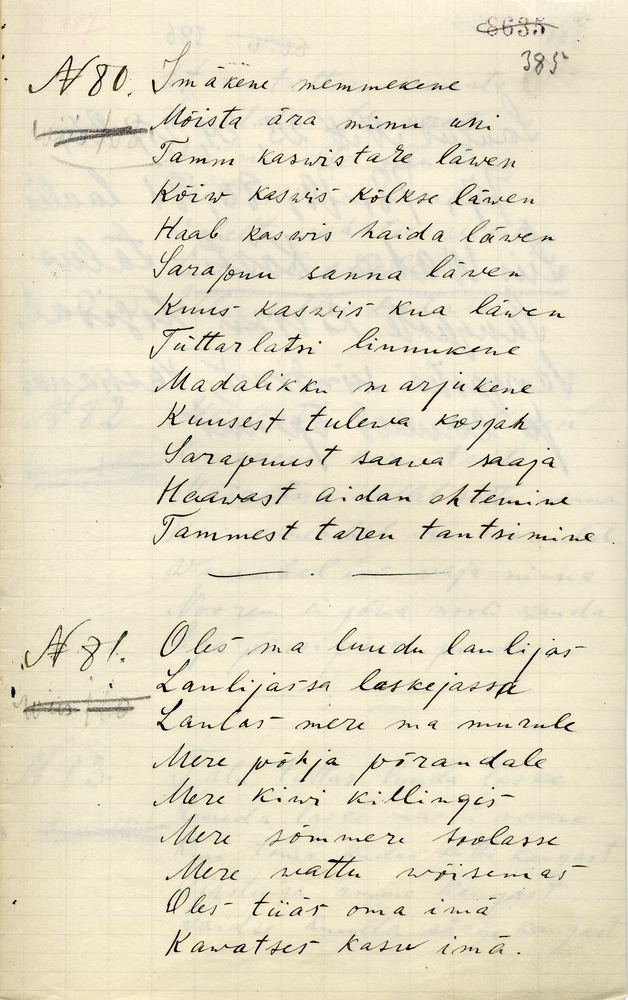 8635
385
N 80. Imäkene memmekene
Mõista ära minu uni
Tamm kaswis tare läwen
Kõiw kaswis kölkse läwen
Haab kaswis haida läwen
Sarapuu sanna läven
Kuus kaswis kua läwen
Tüttarlatsi linnukene
Madalikku marjukene
Kuusest tulewa kosjah
Sarapuust saava saaja
Haawast aidan ehtemine
Tammest taren tantsimine.
N 81. Oles ma luudu laulijas
Laulijassa laskejassa
Laulas mere ma murule
Mere põhja põrandale
Mere kiwi killingis
Mere sõmmere soolasse
Mere wattu wõisemas
Oles tiiäs oma imä
Kawatses kasu imä.